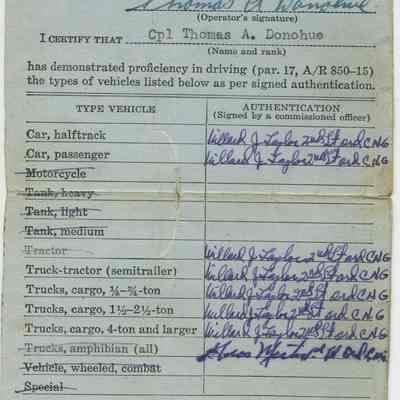 Thomas A Donohue
(Operator's signature)
I CERTIFY THAT Cpl Thomas A. Donohue
(Name and rank)
has demonstrated proficiency in driving (par. 17, A/R 850–15)
the types of vehicles listed below as per signed authentication.
TYPE VEHICLE AUTHENTICATION
(Signed by a commissioned officer)
Car, halftrack Willard J Taylor 2nd Lt Ord C NG
Car, passenger Willard J Taylor 2nd Lt Ord C NG
Motorcycle
Tank, heavy
Tank, light
Tank, medium
Tractor Willard J Taylor 2nd Lt Ord C NG
Truck-tractor (semitrailer) Willard J Taylor 2nd Lt Ord C NG
Trucks, cargo, ¼–¾-ton Willard J Taylor 2nd Lt Ord C NG
Trucks, cargo, 1½–2½-ton Willard J Taylor 2nd Lt Ord C NG
Trucks, cargo, 4-ton and larger Willard J Taylor 2nd Lt Ord C NG
Trucks, amphibian (all)
Vehicle, wheeled, combat
Special